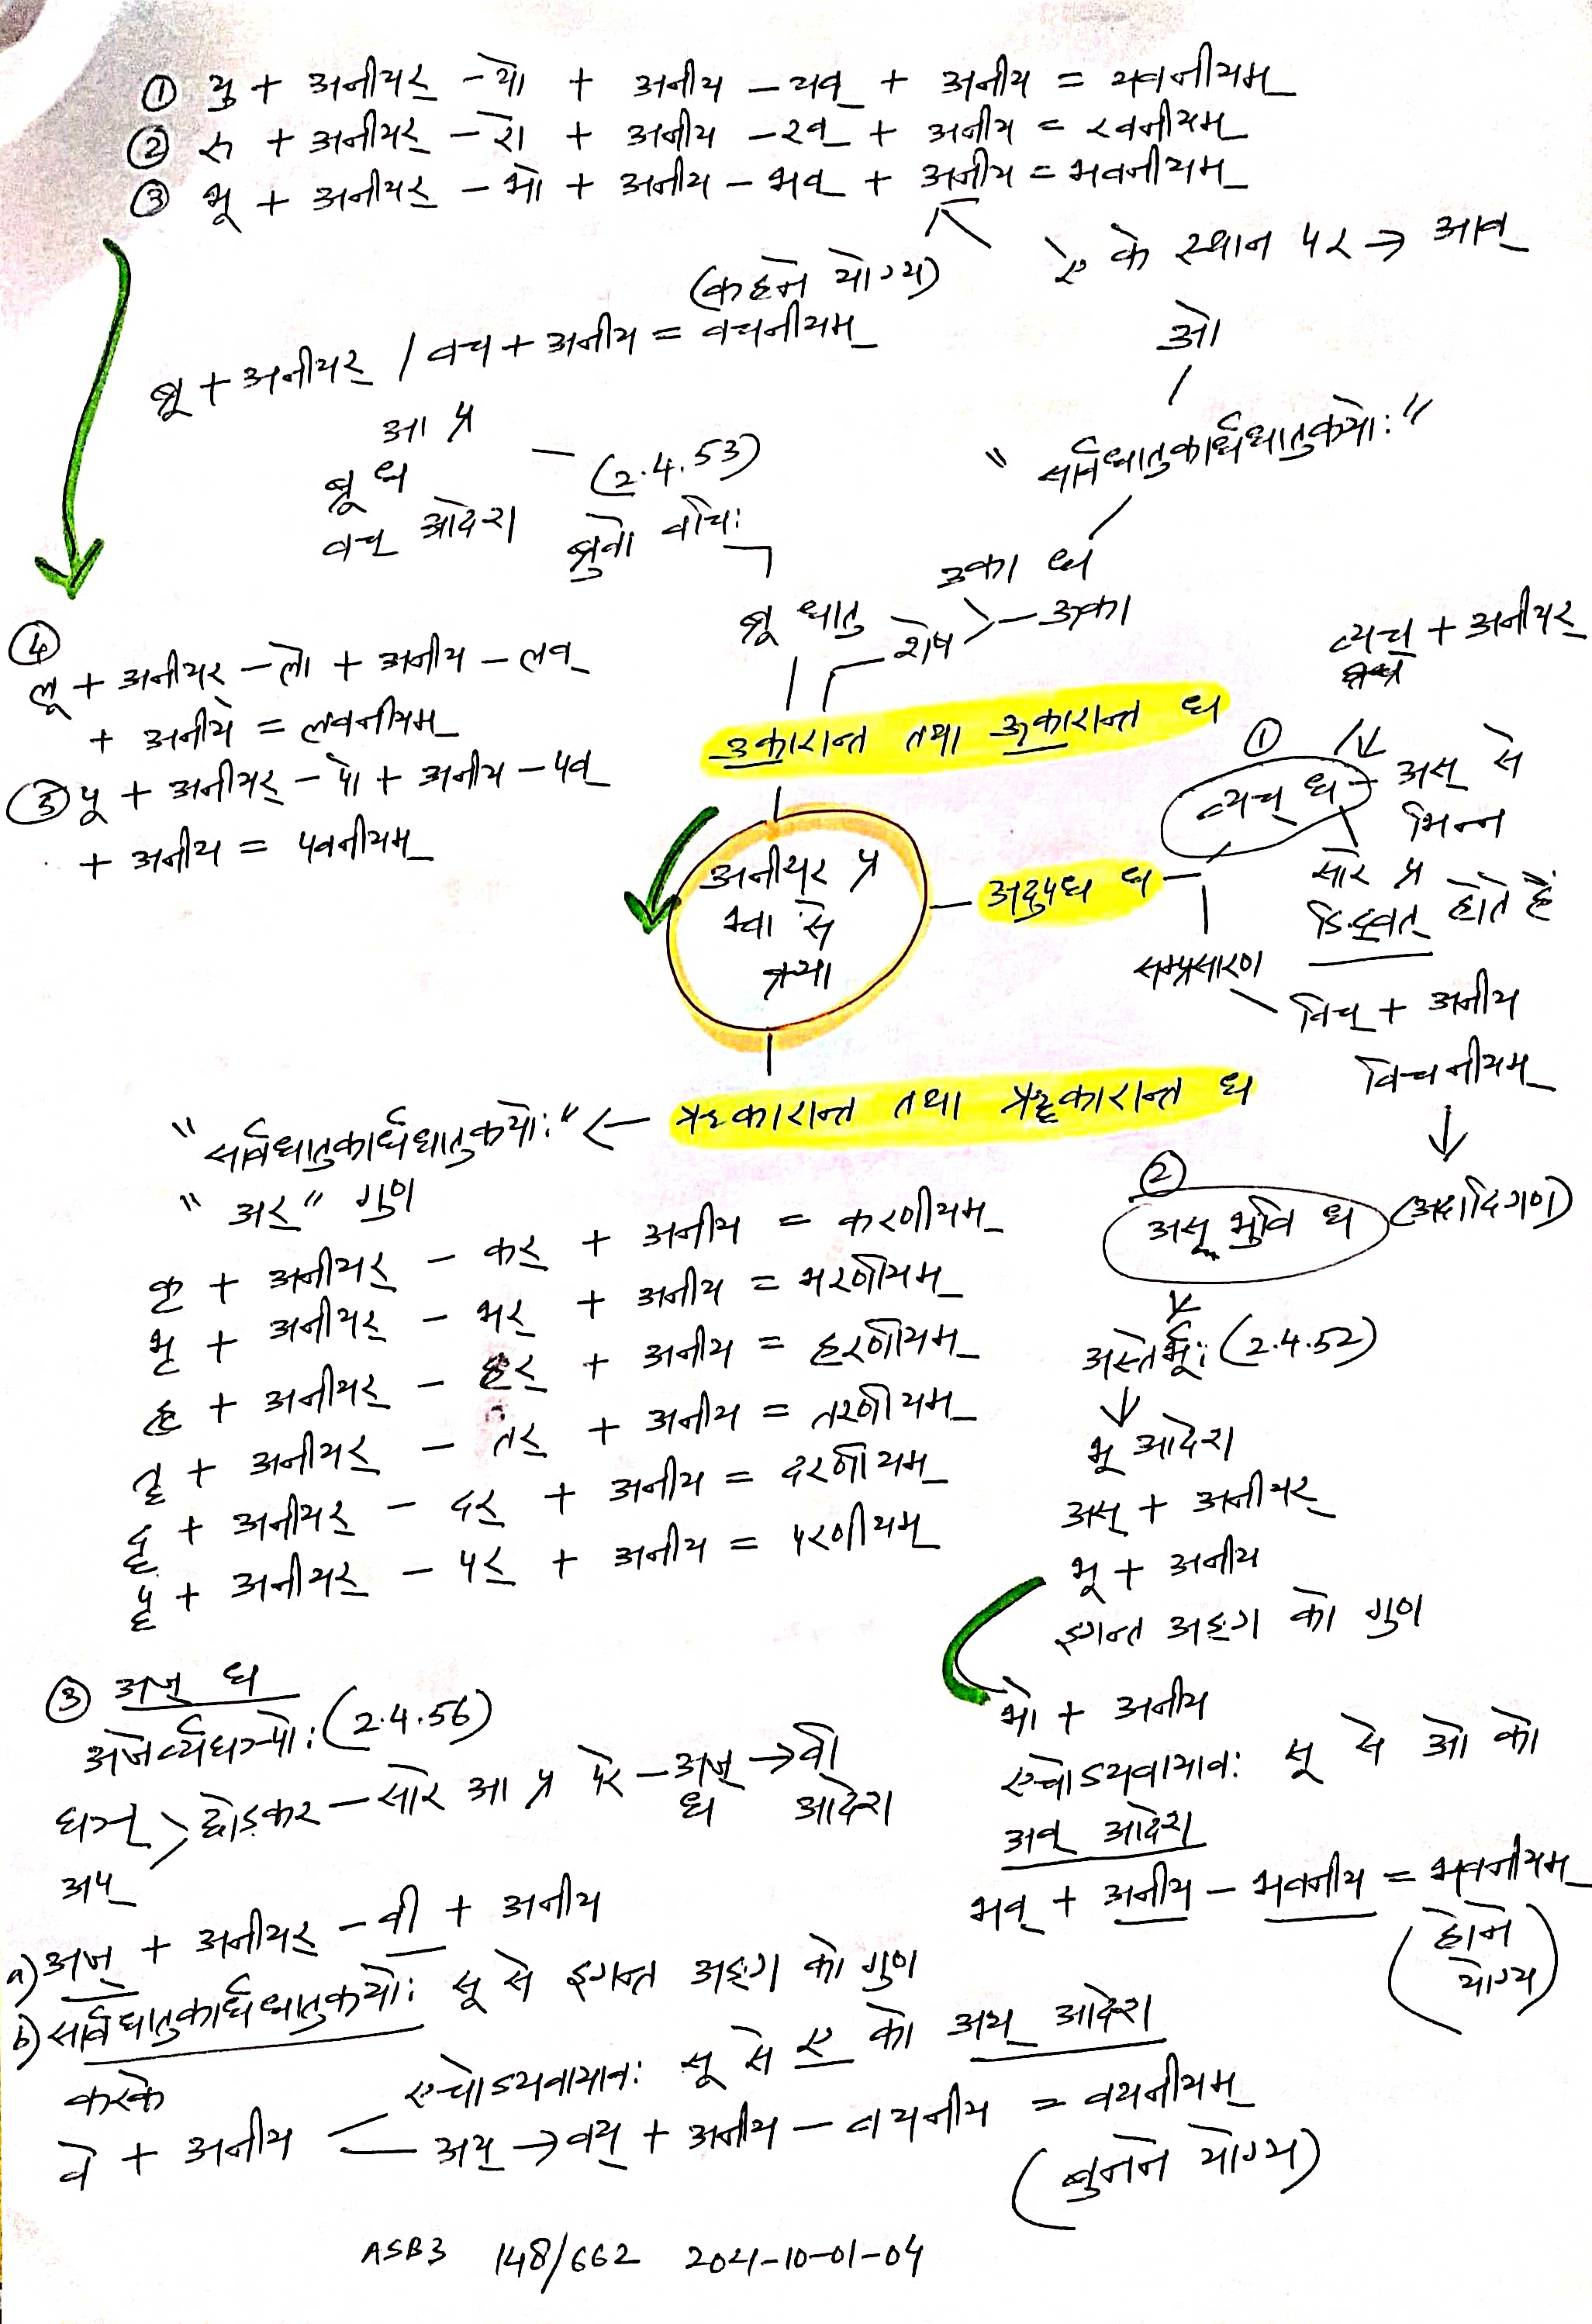 ① यु + अनीयर् - यो + अनीय - यव् + अनीय = यवनीयम्
② रु + अनीयर् - रो + अनीय - रव् + अनीय = रवनीयम्
③ भू + अनीयर् - भो + अनीय - भव् + अनीय = भवनीयम्
ए के स्थान पर → आव्
ओ
"सार्वधातुकार्धधातुकयोः"
उका ध
ऊका
शेष
(कहने योग्य)
ब्रू + अनीयर् / वच + अनीय = वचनीयम्
आ प्र
ब्रू ध - (2.4.53)
वच् आदेश ब्रुवो वचिः
ब्रू धातु
④
लू + अनीयर - लो + अनीय - लव्
+ अनीय = लवनीयम्
⑤ पू + अनीयर् - पो + अनीय - पव्
+ अनीय = पवनीयम्
उकारान्त तथा ऊकारान्त ध
अनीयर प्र
अदुपध ध
व्यच् + अनीयर्
①
व्यच् ध - अस् से
भिन्न
सारे प्र
ङिद्वत् होते हैं
सम्प्रसारण
विच् + अनीय
विचनीयम्
ऋकारान्त तथा ॠकारान्त ध
"सार्वधातुकार्धधातुकयोः" ←
"अर्" गुण
कृ + अनीयर् - कर् + अनीय = करणीयम्
भृ + अनीयर् - भर् + अनीय = भरणीयम्
हृ + अनीयर् - हर् + अनीय = हरणीयम्
तॄ + अनीयर् - तर् + अनीय = तरणीयम्
दॄ + अनीयर् - दर् + अनीय = दरणीयम्
पॄ + अनीयर् - पर् + अनीय = परणीयम्
②
अस् भुवि ध (अदादिगण)
अस्तेर्भूः (2.4.52)
भू आदेश
अस् + अनीयर्
भू + अनीय
इगन्त अङ्ग को गुण
भो + अनीय
एचोऽयवायावः सू से ओ को
अव् आदेश
भव् + अनीय - भवनीय = भवनीयम्
(होने
योग्य)
③ अज् ध
अजेर्व्यघञपोः (2.4.56)
घञ् > छोड़कर - सारे आ प्र परे - अज् → वी
ध आदेश
अप्
a) अज् + अनीयर् - वी + अनीय
b) सार्वधातुकार्धधातुकयोः सू से इगन्त अङ्ग को गुण
करके
एचोऽयवायावः सू से ए को अय् आदेश
वे + अनीय < अय् → वय् + अनीय - वयनीय = वयनीयम्
(बुनने योग्य)
ASB3 148/662 2021-10-01-04